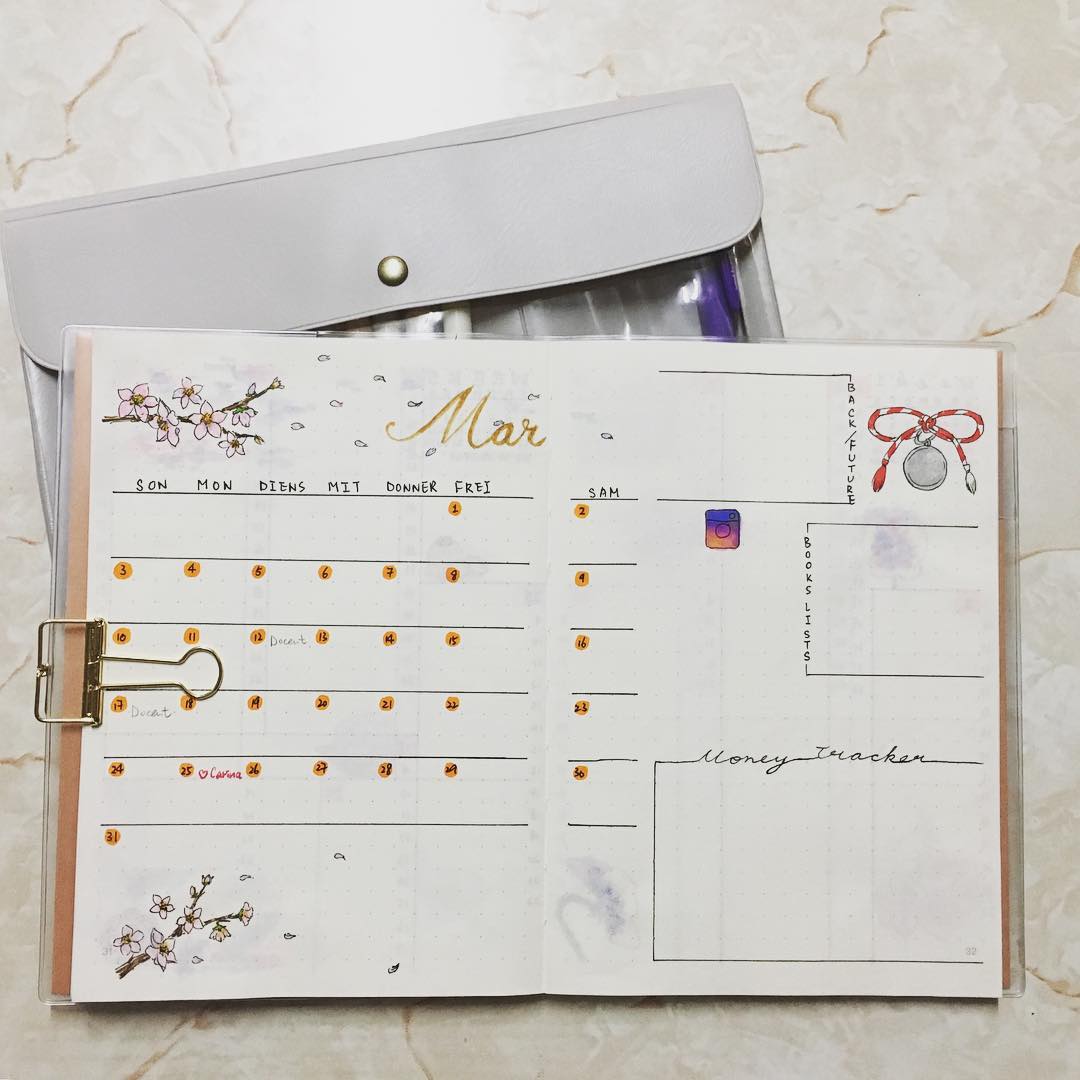 Mar
SON MON DIENS MIT DONNER FREI SAM
1 2
3 4 5 6 7 8 9
10 11 12 Docent 13 14 15 16
17 Docent 18 19 20 21 22 23
24 25 ♡Carina 26 27 28 29 30
31
BACK/FUTURE
BOOKS LISTS
Money Tracker
31
32